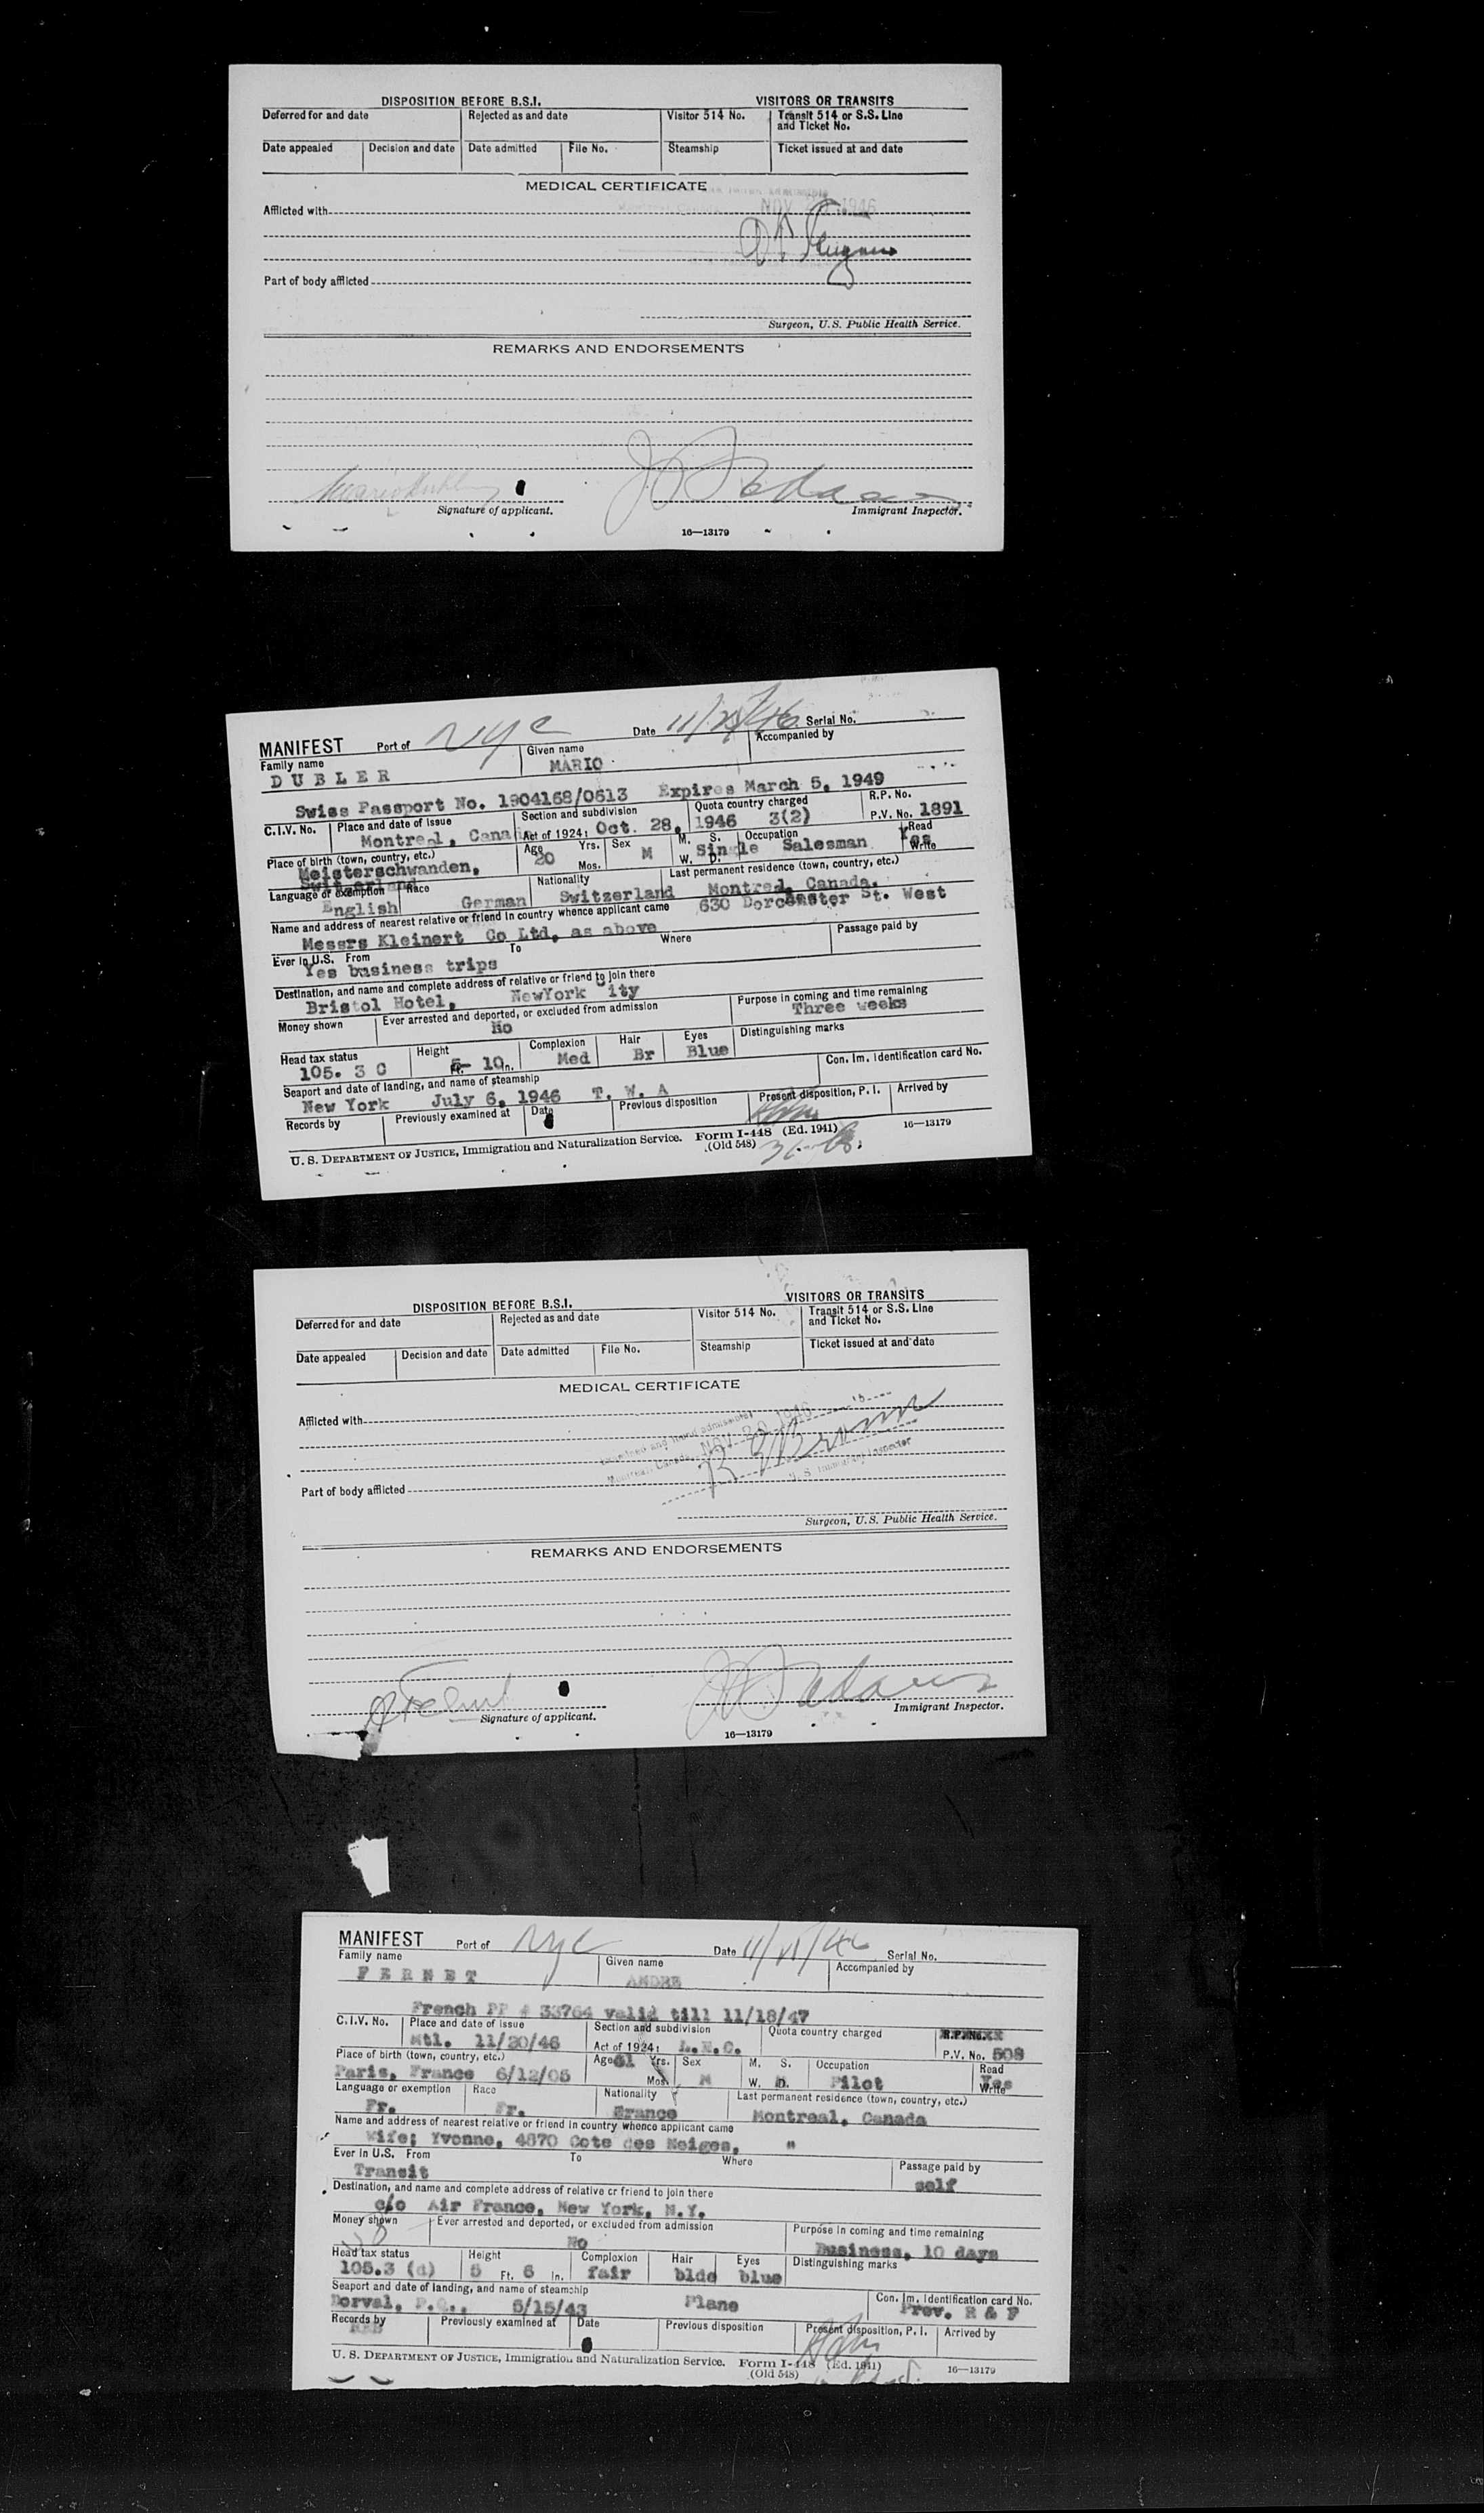 DISPOSITION BEFORE B.S.I. VISITORS OR TRANSITS
Deferred for and date Rejected as and date Visitor 514 No. Transit 514 or S.S. Line and Ticket No.
Date appealed Decision and date Date admitted File No. Steamship Ticket issued at and date
MEDICAL CERTIFICATE
Afflicted with
NOV 1946
Part of body afflicted
Surgeon, U.S. Public Health Service.
REMARKS AND ENDORSEMENTS
Signature of applicant. Immigrant Inspector.
16—13179
MANIFEST Port of NYC Date 11/ /46 Serial No.
Family name Given name Accompanied by
DUBLER MARIO
Swiss Passport No. 1904168/0613 Expires March 5, 1949
C.I.V. No. Place and date of issue Section and subdivision Quota country charged R.P. No.
Montreal, Cana Act of 1924: Oct. 28, 1946 3(2) P.V. No. 1891
Place of birth (town, country, etc.) Age Yrs. Mos. Sex M. S. W. D. Occupation Read Write
Meisterschwanden, 20 M Single Salesman Yes
Switzerland
Language or exemption Race Nationality Last permanent residence (town, country, etc.)
English German Switzerland Montreal, Canada.
Name and address of nearest relative or friend in country whence applicant came 630 Dorchester St. West
Messrs Kleinert Co Ltd, as above
Ever in U.S. From To Where Passage paid by
Yes business trips
Destination, and name and complete address of relative or friend to join there
Bristol Hotel, NewYork City
Money shown Ever arrested and deported, or excluded from admission Purpose in coming and time remaining
No Three weeks
Head tax status Height Complexion Hair Eyes Distinguishing marks
105. 3 C 5- 10 In. Med Br Blue
Seaport and date of landing, and name of steamship Con. Im. Identification card No.
New York July 6, 1946 T. W. A
Records by Previously examined at Date Previous disposition Present disposition, P. I. Arrived by
U. S. DEPARTMENT OF JUSTICE, Immigration and Naturalization Service. Form I-448 (Ed. 1941) 16—13179
(Old 548)
DISPOSITION BEFORE B.S.I. VISITORS OR TRANSITS
Deferred for and date Rejected as and date Visitor 514 No. Transit 514 or S.S. Line and Ticket No.
Date appealed Decision and date Date admitted File No. Steamship Ticket issued at and date
MEDICAL CERTIFICATE
Afflicted with
Examined and found admissible
Montreal, Canada NOV 20 1946
Brown
U. S. Immigrant Inspector
Part of body afflicted
Surgeon, U.S. Public Health Service.
REMARKS AND ENDORSEMENTS
Signature of applicant. Immigrant Inspector.
16—13179
MANIFEST Port of NYC Date 11/ /46 Serial No.
Family name Given name Accompanied by
FERNET ANDRE
French PP # 33764 valid till 11/18/47
C.I.V. No. Place and date of issue Section and subdivision Quota country charged
Mtl. 11/20/46 Act of 1924: P.V. No. 508
Place of birth (town, country, etc.) Age Yrs. Mos. Sex M. S. W. D. Occupation Read Write
Paris, France 6/12/05 M Pilot Yes
Language or exemption Race Nationality Last permanent residence (town, country, etc.)
Fr. Fr. France Montreal, Canada
Name and address of nearest relative or friend in country whence applicant came
Wife; Yvonne, 4870 Cote des Neiges, "
Ever in U.S. From To Where Passage paid by
Transit self
Destination, and name and complete address of relative or friend to join there
c/o Air France, New York, N.Y.
Money shown Ever arrested and deported, or excluded from admission Purpose in coming and time remaining
No Business, 10 days
Head tax status Height Complexion Hair Eyes Distinguishing marks
105.3 (d) 5 Ft. 6 In. fair blde blue
Seaport and date of landing, and name of steamship Con. Im. Identification card No.
Dorval, P.Q., 5/15/43 Plane Prev. R & F
Records by Previously examined at Date Previous disposition Present disposition, P. I. Arrived by
U. S. DEPARTMENT OF JUSTICE, Immigration and Naturalization Service. Form I-448 (Ed. 1941) 16—13179
(Old 548)